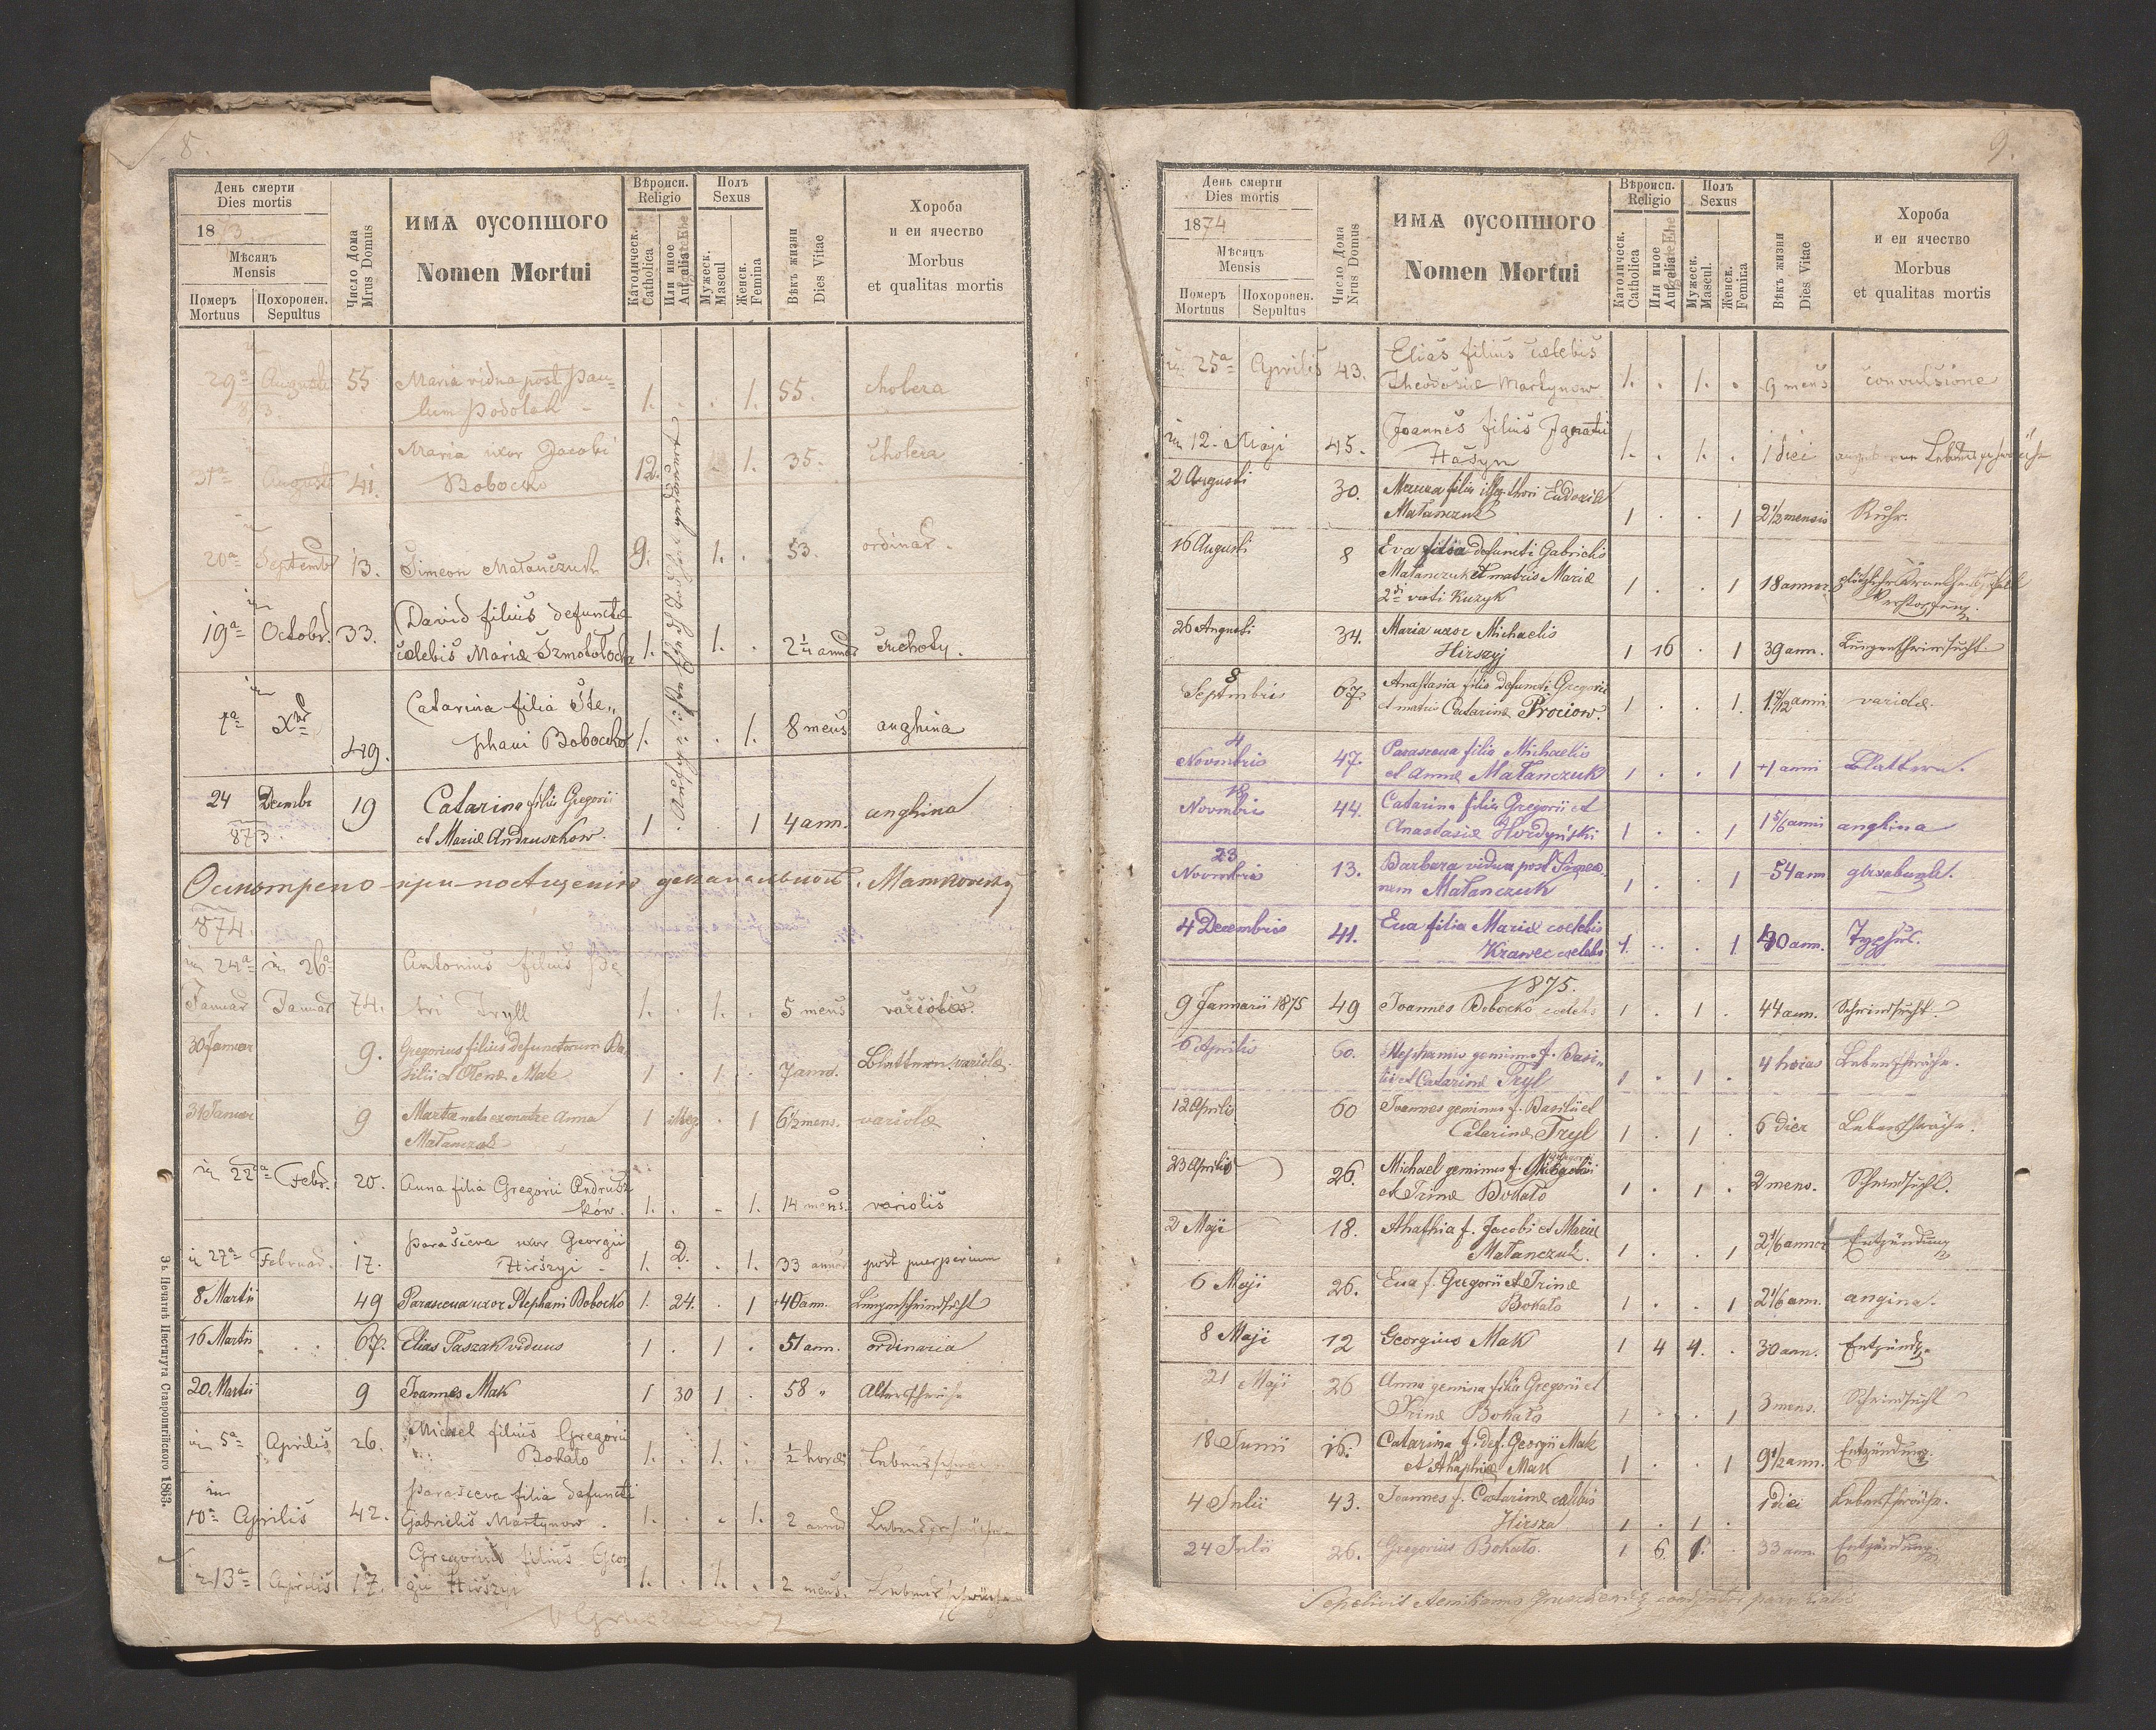 8.
День смерти
Dies mortis
1873
Мѣсяцъ
Mensis
Померъ
Mortuus
Похоронен.
Sepultus
Число Дома
Nrus Domus
ИМѦ ОУСОПШОГО
Nomen Mortui
Вѣроисп.
Religio
Католическ.
Catholica
Или иное
Aut alia
Полъ
Sexus
Мужеск.
Mascul
Женск.
Femina
Вѣкъ жизни
Dies Vitae
Хороба
и еи ячество
Morbus
et qualitas mortis
29a Augusti 55 Maria vidua post Pau-
873. lum Podolak - 1. . . 1. 55. cholera
Maria uxor Jacobi
31a Augusti 41. Bobocko 12. . 1. 35. cholera
20a Septemb 13. Simeon Matanczuk 9. 1. . 53. ordinar.
in David filius defunctæ
19a Octobr. 33. cælebis Mariæ 1. 1. . Suchoty.
in Catarina filia Ste-
1a Xbr 49. phani Bobocko 1. . 1. 8 mens anghina
24 Decembr 19 Catarina filia Gregorii
873. et Mariæ Andruszkow. 1 . 1 4 ann. anghina
Осмотрено при посѣщенію деканальном.
874.
in 24a in 26a Antonius filius Pe
Januar Januar 74. tri Tryll 1. . 1. . 5 mens variolis.
30 Januar 9. Gregorius filius defunctorum Ba
silii et Mak 1 . 1 . 7 ann. Blattern variolæ.
31 Januar 9 Marta nata ex matre Anna 1 . 1 6½ mens. variolæ
Matanczuk
in 22a Febr. 20. Anna filia Gregorii Andrusz
ków. 1. . - 1. 14 mens. variolis
Parasceva uxor Georgii
in 27a Februar. 17. Hirszyi - 1. 2. . 1. 33 annor post puerperium
8 Martii 49 Parasceua uxor Stephani Bobocko 1. 24. . 1 40 ann. Lungenschwindsucht
16 Martii . . . 67. Elias Taszak viduus 1 . 1 . 51 ann. ordinaria
20. Martii 9 Joannes Mak 1 30 1 . 58 " Altersschwäche
in 5a Aprilis 26. Michael filius Gregorii
Bokalo 1. . 1. . ½ horæ Lebensschwäche
in Parasceva filia defuncti
10a Aprilis 42. Gabrielis Martynow. 1. . - 1. 2 annor Lebensschwäche
Gregorius filius Geor
13a Aprilis 17. gii Hirszyi 1. . 1. . 2 mens. Lebensschwäche
Зъ Печатнѣ Института Ставропигійского 1863.
9.
День смерти
Dies mortis
1874
Мѣсяцъ
Mensis
Померъ
Mortuus
Похоронен.
Sepultus
Число Дома
Nrus Domus
ИМѦ ОУСОПШОГО
Nomen Mortui
Вѣроисп.
Religio
Католическ.
Catholica
Или иное
Aut alia
Полъ
Sexus
Мужеск.
Mascul.
Женск.
Femina
Вѣкъ жизни
Dies Vitae
Хороба
и еи ячество
Morbus
et qualitas mortis
Elias filius cælebis
in 25a Aprilis 43. Theodosiæ Martynow 1. . 1. . 9 mens convulsione
Joannes filius Ignatii
in 12. Maji 45. Hasyn 1. . 1. . 1 diei Lebensschwäche
2 Augusti 30. Maura filia illeg. thori Eudoxiæ
Matanczuk 1 . . 1 2½ mensis Ruhr.
16 Augusti 8 Eva filia defuncti Gabrielis
Matanczuk et matris Mariæ 1 . . 1 18 annor
2di voti Kuzyk
26 Augusti 34. Maria uxor Michaelis
Hirszyj 1 16 . 1 39 ann. Lungenschwindsucht.
8 Anastasia filia defuncti Gregorii
Septembris 67. et matris Catarinæ Prociow. 1 . . 1. variolæ.
4 Parasceua filia Michaelis
Novembris 47. et Annæ Matanczuk 1 . . 1 Blattern.
18 Catarina filia Gregorii et
Novembris 44. Anastasiæ Hordyński 1 . . 1 1 5/6 anni anghina
23 Barbara vidua post Simeo
Novembris 13. nem Matanczuk 1 . . 1 54 ann
4 Decembris 41. Eua filia Mariæ coelebis
Krawec coelebs 1. . . 1 40 ann. Typhus.
1875.
9 Januarii 1875 49 Joannes Bobocko coelebs 1 . 1 . 44 ann. Schwindsucht.
6 Aprilis 60. Stephanus geminus f. Basi-
lii et Catarinæ Tryl 1 . 1 . 4 horas Lebensschwäche.
12 Aprilis 60 Joannes geminus f. Basilii et
Catarinæ Tryl 1 . 1 . 6 dier Lebensschwäche.
23 Aprilis 26. Michael geminus f. Gregorii
et Irinæ Bokalo 1 . 1 . 2 mens. Schwindsucht.
2 Maji 18. Ahaphia f. Jacobi et Mariæ
Matanczuk. 1 . . 1 2 1/6 annor Entzündung
6 Maji 26. Eua f. Gregorii et Irinæ
Bokalo 1 . . 1 2 1/6 ann. angina.
8 Maji 12 Georgius Mak 1 4 1. . 30 ann. Entzündg.
21 Maji 26 Anna gemina filia Gregorii et
Irinæ Bokalo 1 . . 1 3 mens. Schwindsucht
18 Junii 16. Catarina f. def. Georgii Mak
et Ahaphiæ Mak 1 . . 1 9½ ann. Entzündung.
4 Julii 43. Joannes f. Catarinæ cælebis
Hirsza 1 . 1 . 1 diei Lebensschwäche.
24 Julii 26. Gregorius Bokalo. 1 6. 1. . 33 ann. Entzündung.
Sepelivit